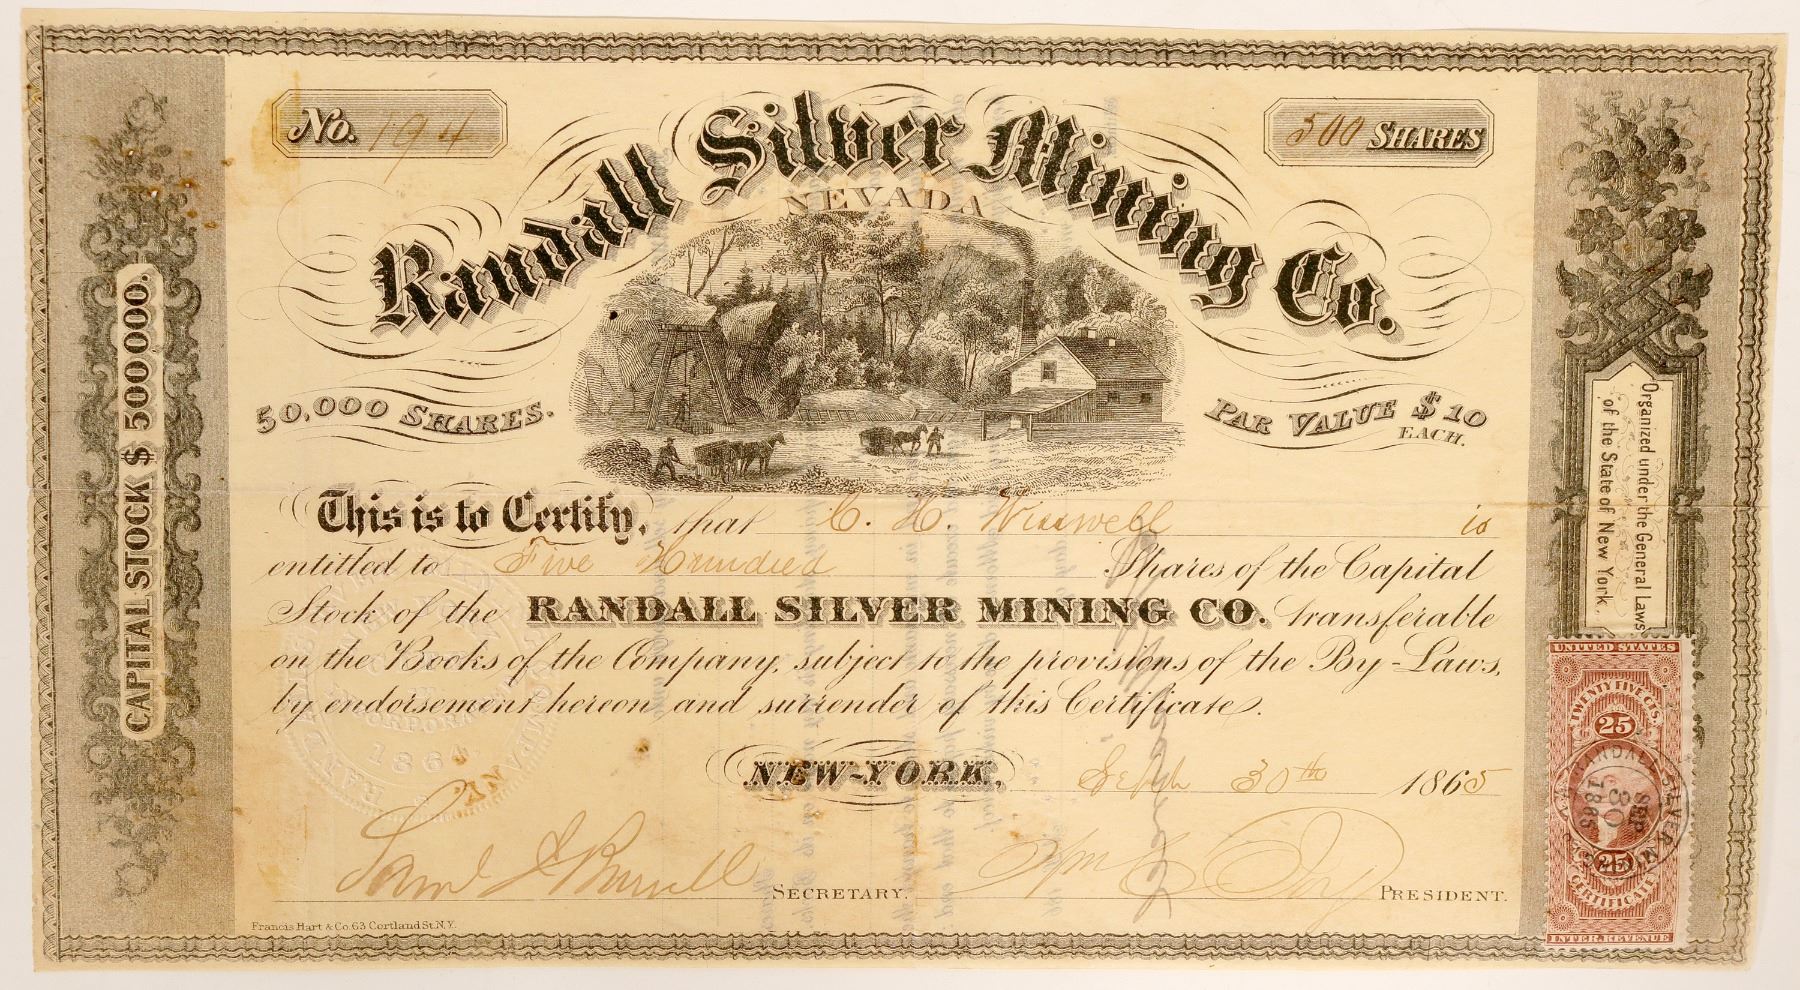 No. 194
500 SHARES
Randall Silver Mining Co.
NEVADA
50,000 SHARES.
PAR VALUE $10
EACH.
CAPITAL STOCK $500,000.
Organized under the General Laws
of the State of New York.
This is to Certify, that C. H. Wisswell is
entitled to Five Hundred Shares of the Capital
Stock of the RANDALL SILVER MINING CO. transferable
on the Books of the Company, subject to the provisions of the By-Laws,
by endorsement hereon and surrender of this Certificate.
NEW-YORK, Sept 30th 1865
SECRETARY.
PRESIDENT.
Francis Hart & Co. 63 Cortland St. N.Y.
INCORPORATED
1864
UNITED STATES
TWENTY FIVE CTS.
25
RANDALL SILVER MINING
SEP
30
1865
25
CERTIFICATE
INTER. REVENUE